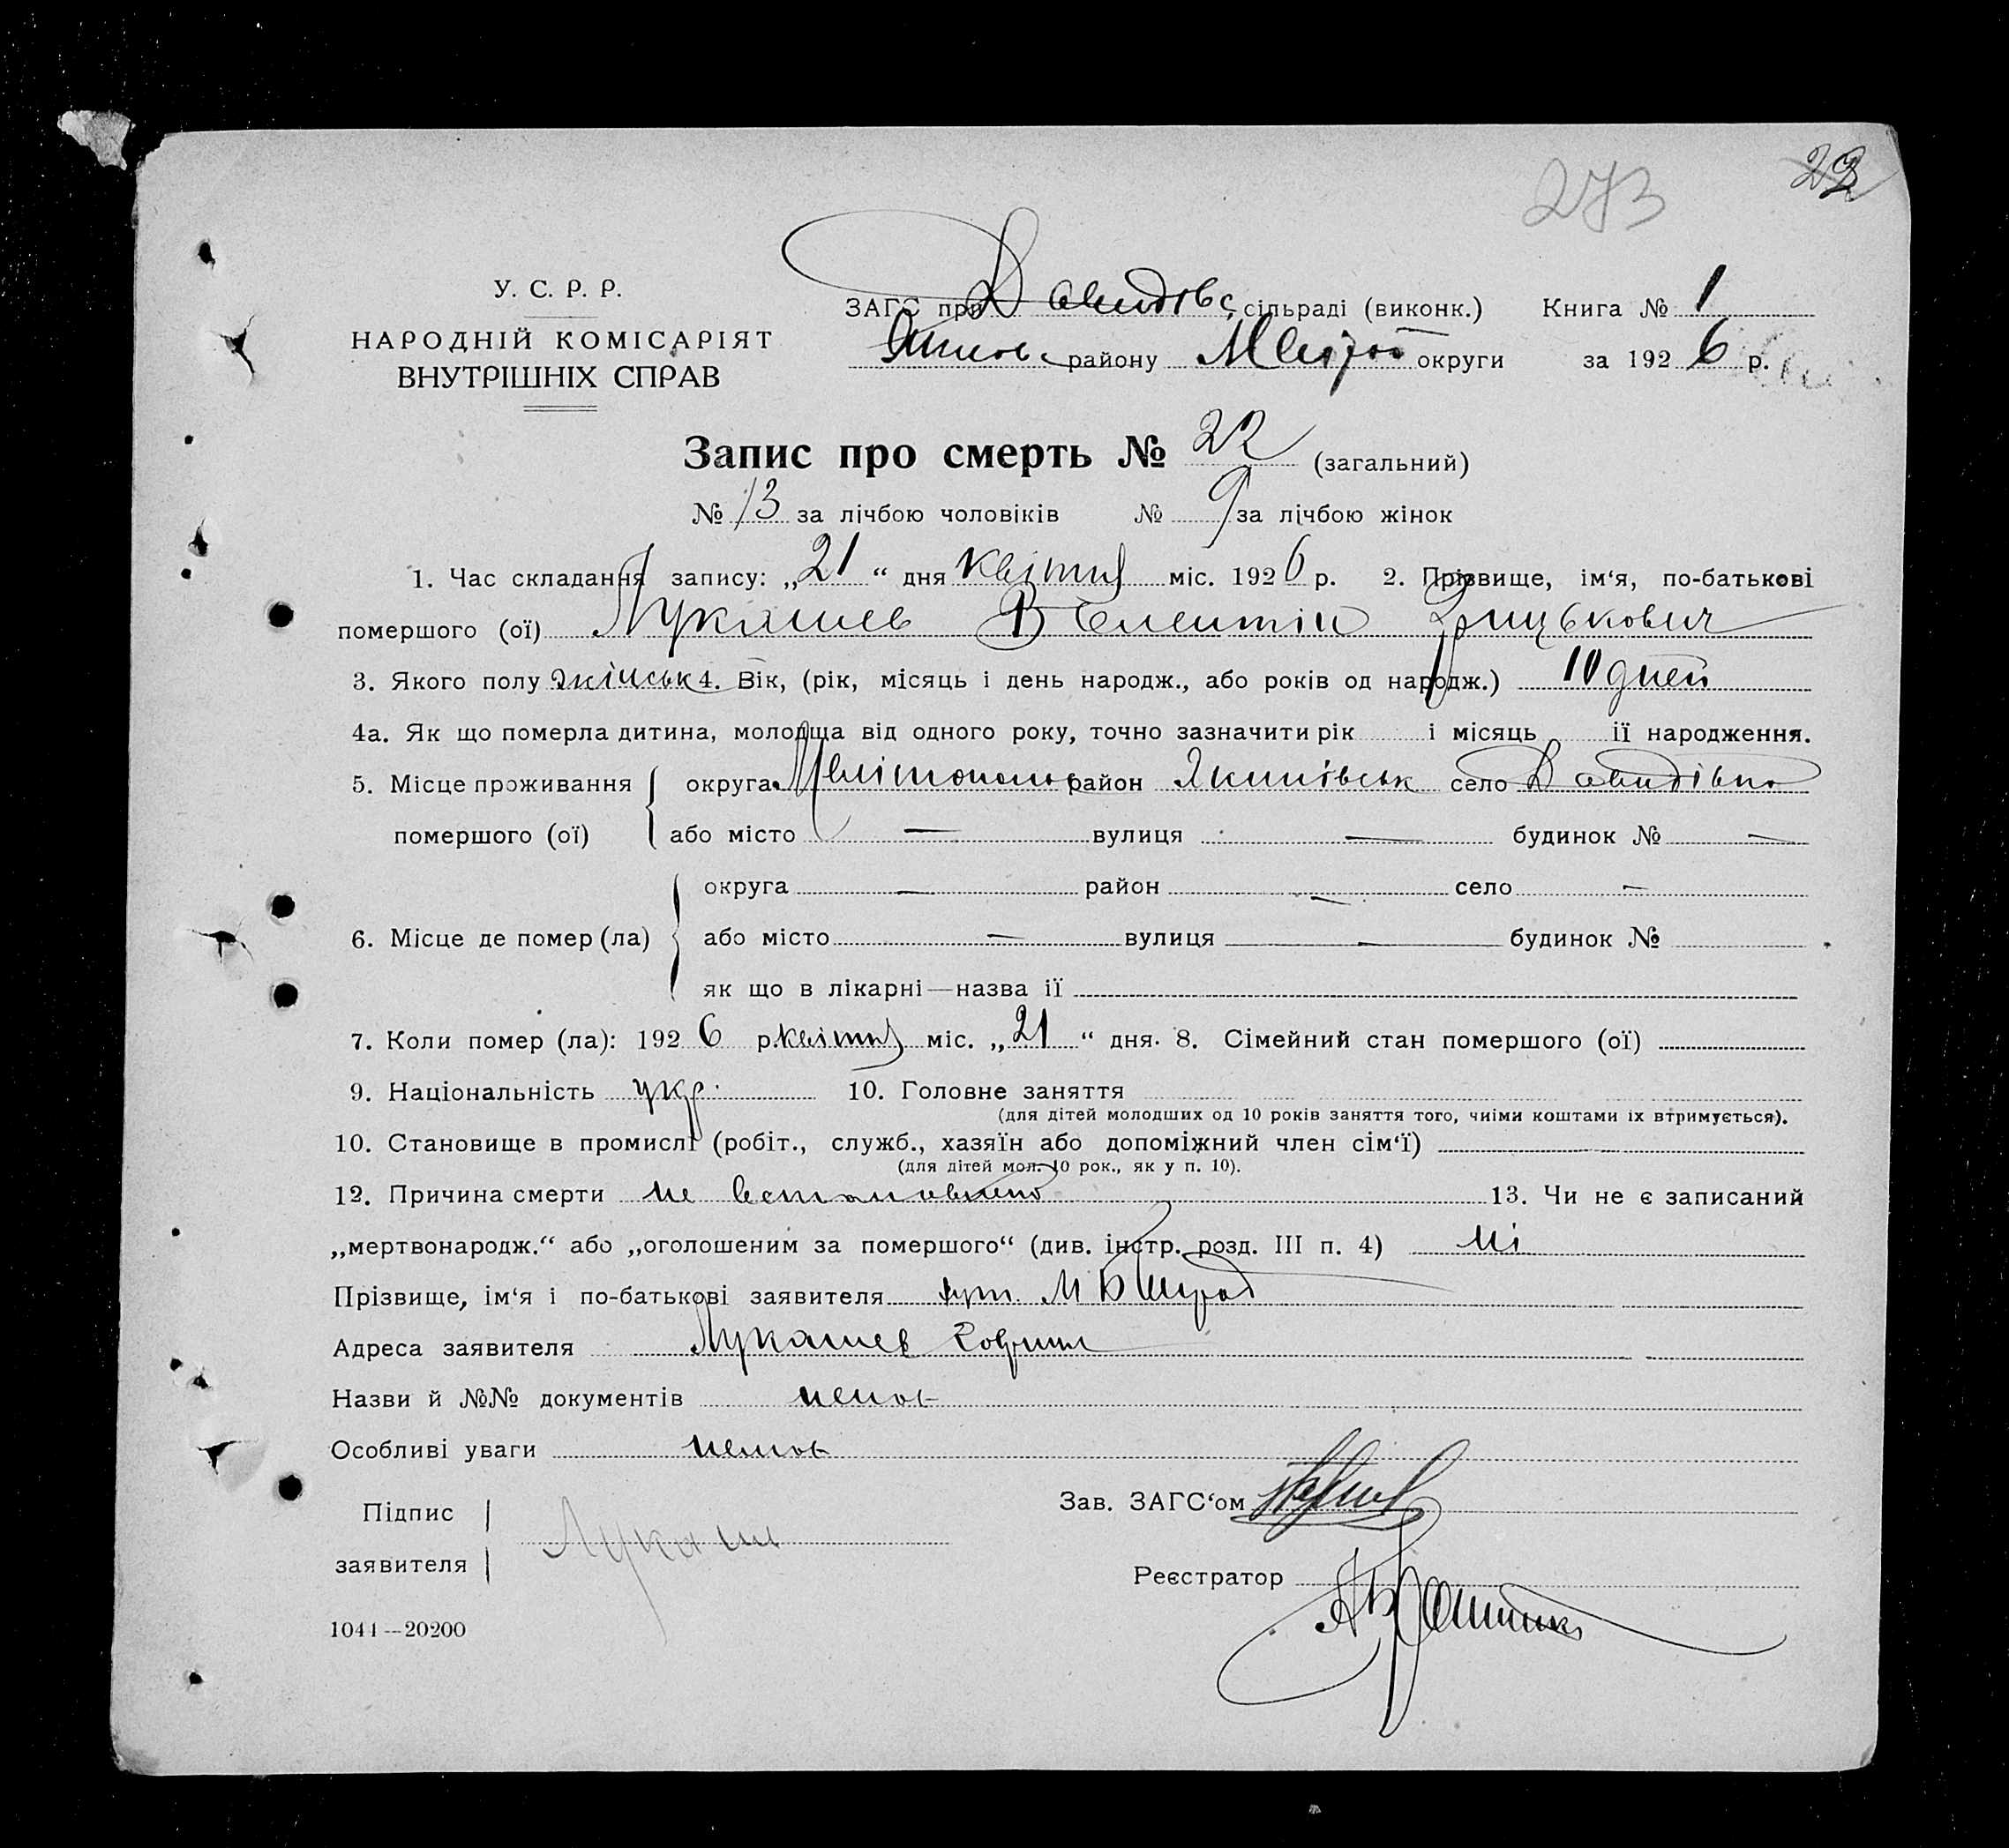 273
22
У. С. Р. Р.
НАРОДНІЙ КОМІСАРІЯТ
ВНУТРІШНІХ СПРАВ
ЗАГС при Давидівс сільраді (виконк.) Книга № 1
району округи за 1926 р.
Запис про смерть № 22 (загальний)
№ 13 за лічбою чоловіків № 9 за лічбою жінок
1. Час складання запису: „21“ дня квітня міс. 1926 р. 2. Прізвище, ім‘я, по-батькові
помершого (ої) Лукашев Валентін Грицькович
3. Якого полу жінськ 4. Вік, (рік, місяць і день народж., або років од народж.) 10 дней
4а. Як що померла дитина, молодша від одного року, точно зазначити рік і місяць її народження.
5. Місце проживання округа Мелітополь район Якимівськ село Давидівка
помершого (ої) або місто — вулиця — будинок № —
округа — район — село —
6. Місце де помер (ла) або місто — вулиця — будинок №
як що в лікарні—назва її
7. Коли помер (ла): 1926 р. квітня міс. „21“ дня. 8. Сімейний стан помершого (ої)
9. Національність укр. 10. Головне заняття
(для дітей молодших од 10 років заняття того, чиїми коштами їх втримується).
10. Становище в промислі (робіт., служб., хазяїн або допоміжний член сім‘ї)
(для дітей мол. 10 рок., як у п. 10).
12. Причина смерти не встановлено 13. Чи не є записаний
„мертвонародж.“ або „оголошеним за помершого“ (див. інстр. розд. III п. 4) ні
Прізвище, ім‘я і по-батькові заявителя
Адреса заявителя Лукашев
Назви й №№ документів
Особливі уваги
Підпис
заявителя Лукаш
Зав. ЗАГС‘ом
Реєстратор
1041—20200